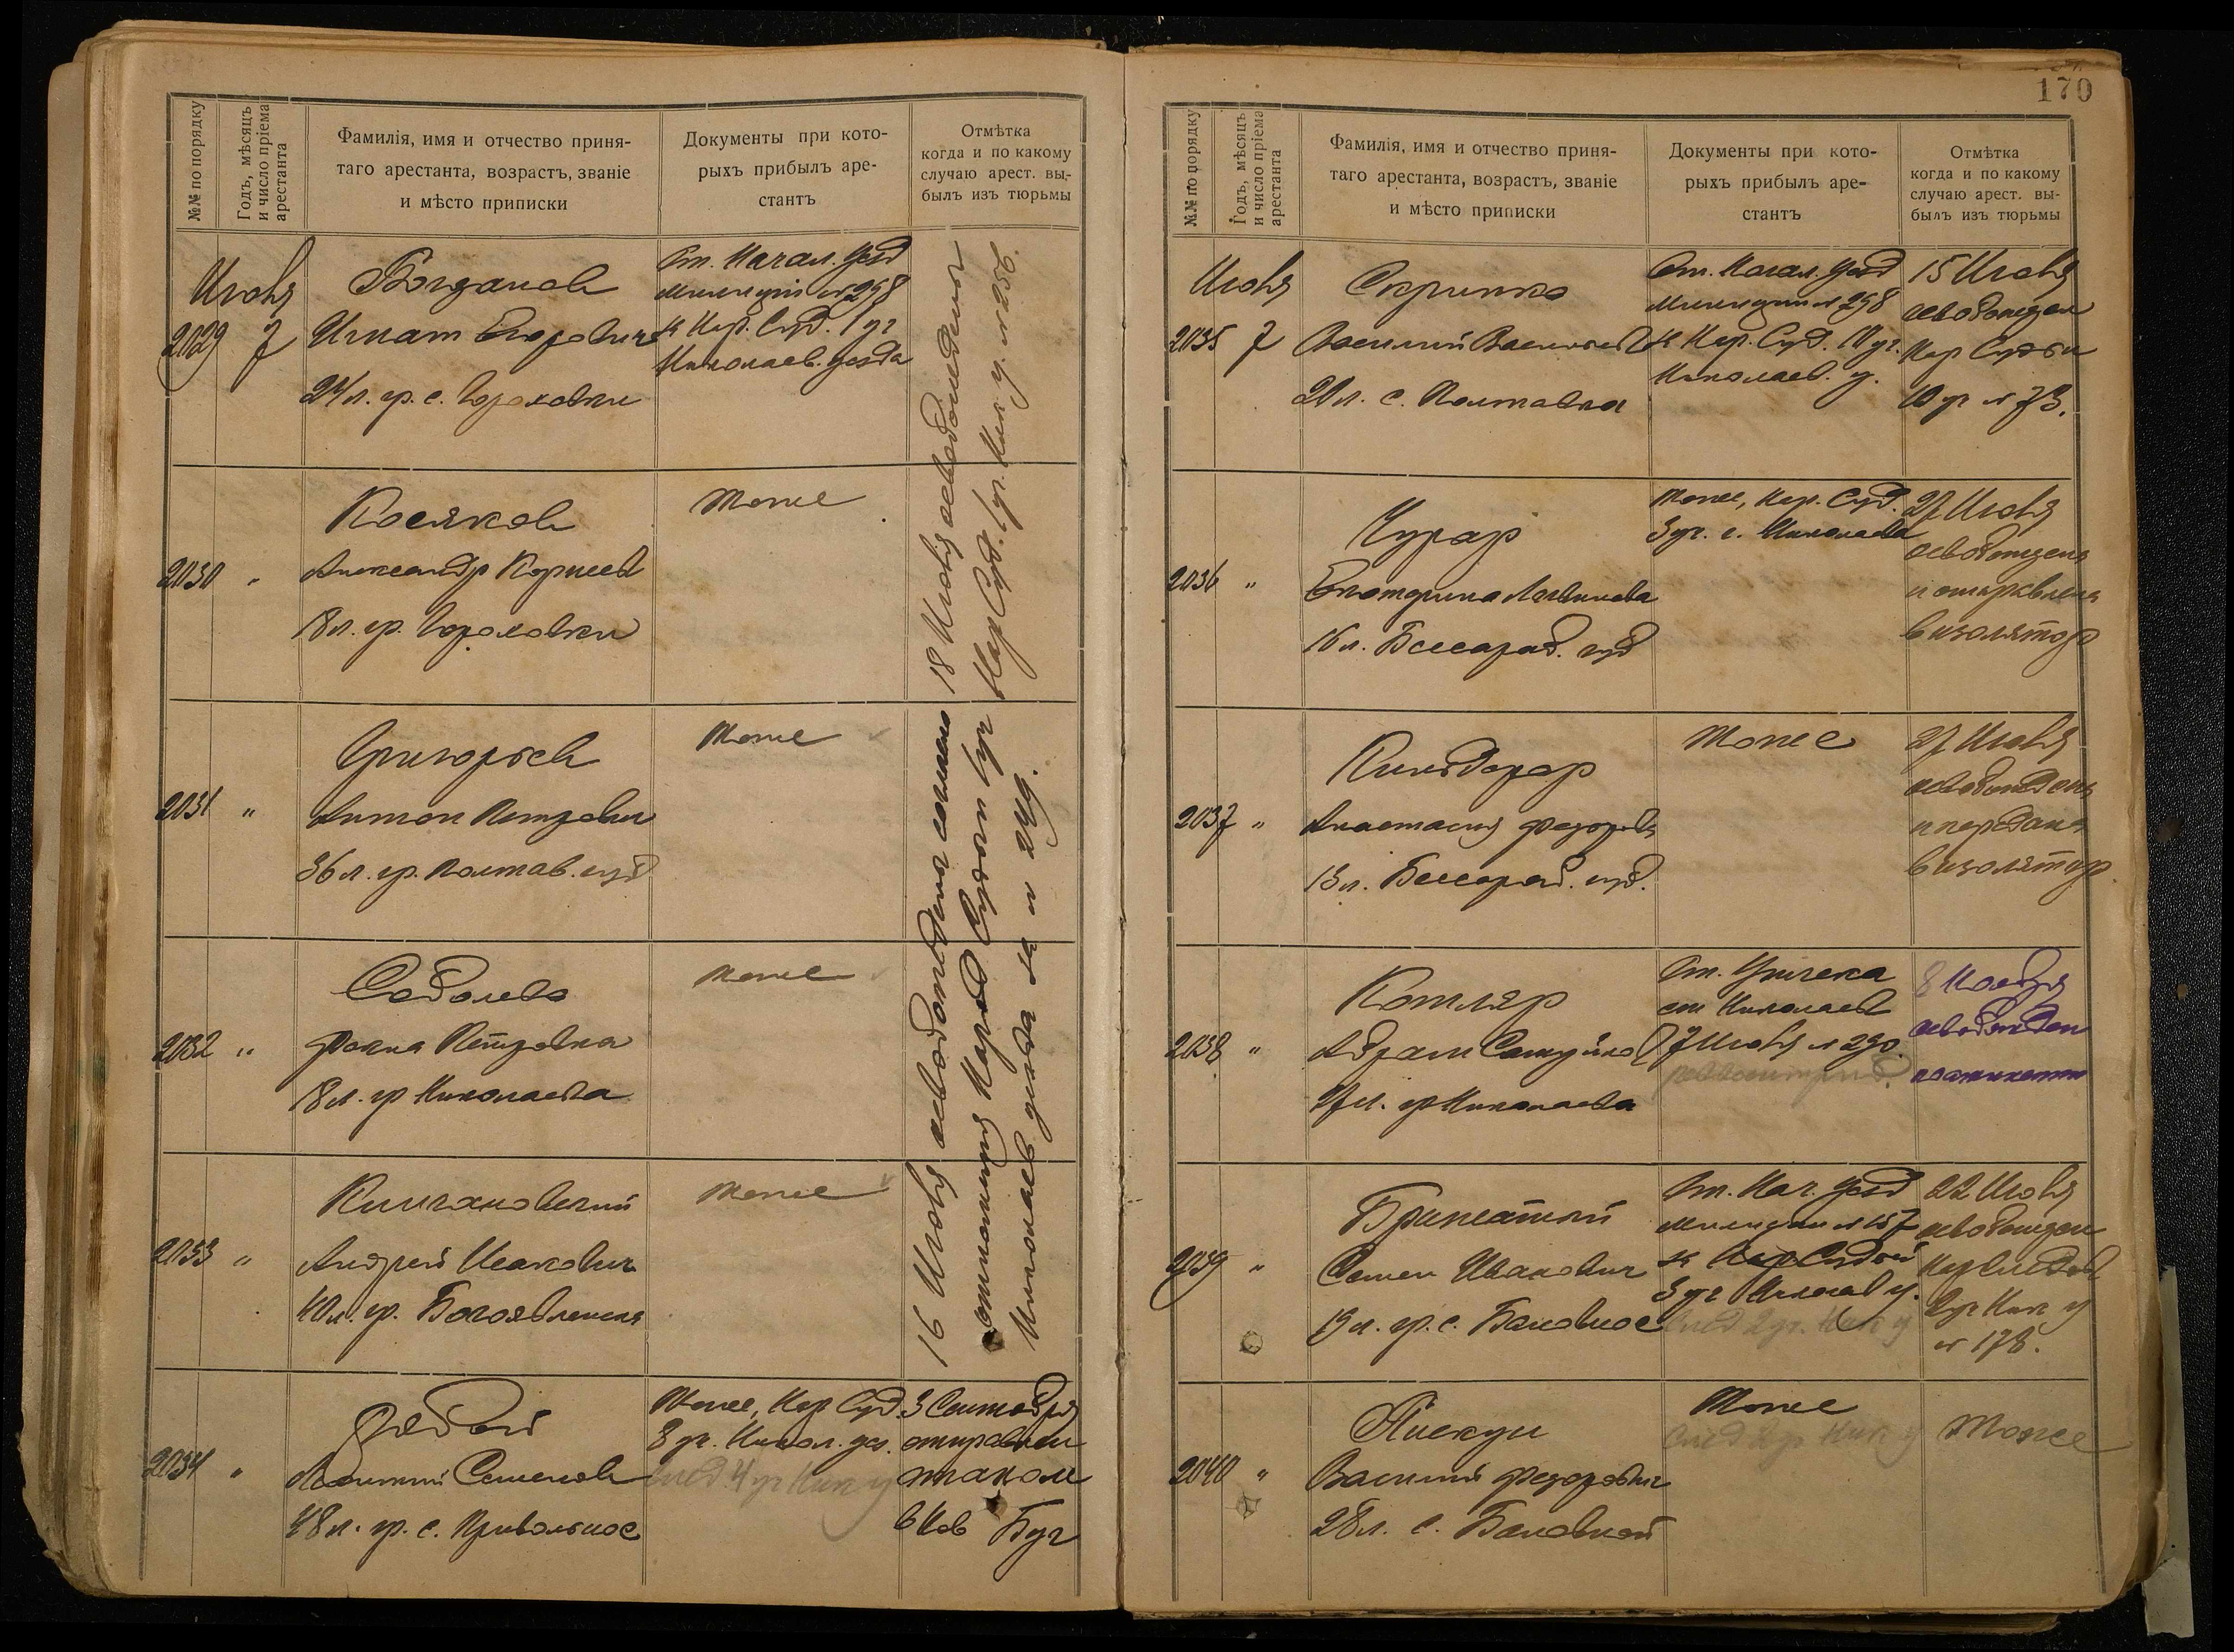 №№ по порядку
Годъ, мѣсяцъ
и число пріема
арестанта
Фамилія, имя и отчество приня-
таго арестанта, возрастъ, званіе
и мѣсто приписки
Документы при кото-
рыхъ прибылъ аре-
стантъ
Отмѣтка
когда и по какому
случаю арест. вы-
былъ изъ тюрьмы
Июня
2029 7
Богданов
Игнат Егорович
24 л. гр. с. Гороховки
От. Начал. Уезд
милиции № 298
к Нар. Суд. 1 уч
Николаев. уезда
18 Июня освобождены
Нар Суд. 1 уч. Ник у. № 256.
2030 "
Косяков
Александр Корнеев
18 л. гр. Гороховки
тоже
2031 "
Григорьев
Антон Петрович
36 л. гр. Полтав. губ
тоже
16 Июня освобождены согласно
отношения Народ Судьи 1 уч
Николаев уезда за № 249.
2032 "
Соболева
Фаина Петровна
18 л. гр Николаева
тоже
2033 "
Андрей Исакович
40 л. гр. Богоявленска
тоже
2034 "
Рябой
Семенов
48 л. гр. с. Привольное
Тоже, Нар Суд.
3 уч. Никол. уез.
след 4 уч Ник у
3 Сентября
отправлен
этапом
в Нов Буг
170
№№ по порядку
Годъ, мѣсяцъ
и число пріема
арестанта
Фамилія, имя и отчество приня-
таго арестанта, возрастъ, званіе
и мѣсто приписки
Документы при кото-
рыхъ прибылъ аре-
стантъ
Отмѣтка
когда и по какому
случаю арест. вы-
былъ изъ тюрьмы
Июня
2035 7
Скрипка
Василий Васильев
20 л. с. Полтавка
От. Начал. Уезд
милиции № 298
к Нар. Суд. 10 уч.
Николаев. у.
15 Июня
освобожден
Нар Судьи
10 уч № 73.
2036 "
Чурар
Екатерина
16 л. Бессараб. губ
тоже, Нар. Суд.
3 уч. г. Николаева
27 Июня
освобождена
и отправлена
в изолятор
2037 "
Анастасия Федоров
13 л. Бессараб. губ.
тоже
27 Июня
освобождена
и передана
в изолятор
2038 "
Котляр
Абрам Самуйлов
27 л. гр Николаева
От. Учгчека
ст Николаев
7 Июня № 290.
8 Ноября
освобожден
по амнистии
2039 "
Семен Иванович
19 л. гр. с. Баловное
От. Нач. Уезд
милиции № 157
к Нар Судьи
3 уч Николаев у.
след 2 уч. Ник у
22 Июня
освобожден
Нар Следов
2 уч Ник у
№ 178.
2040 "
Пискун
Василий Федорович
28 л. с. Баловной
Тоже
след 2 уч Ник у
Тоже